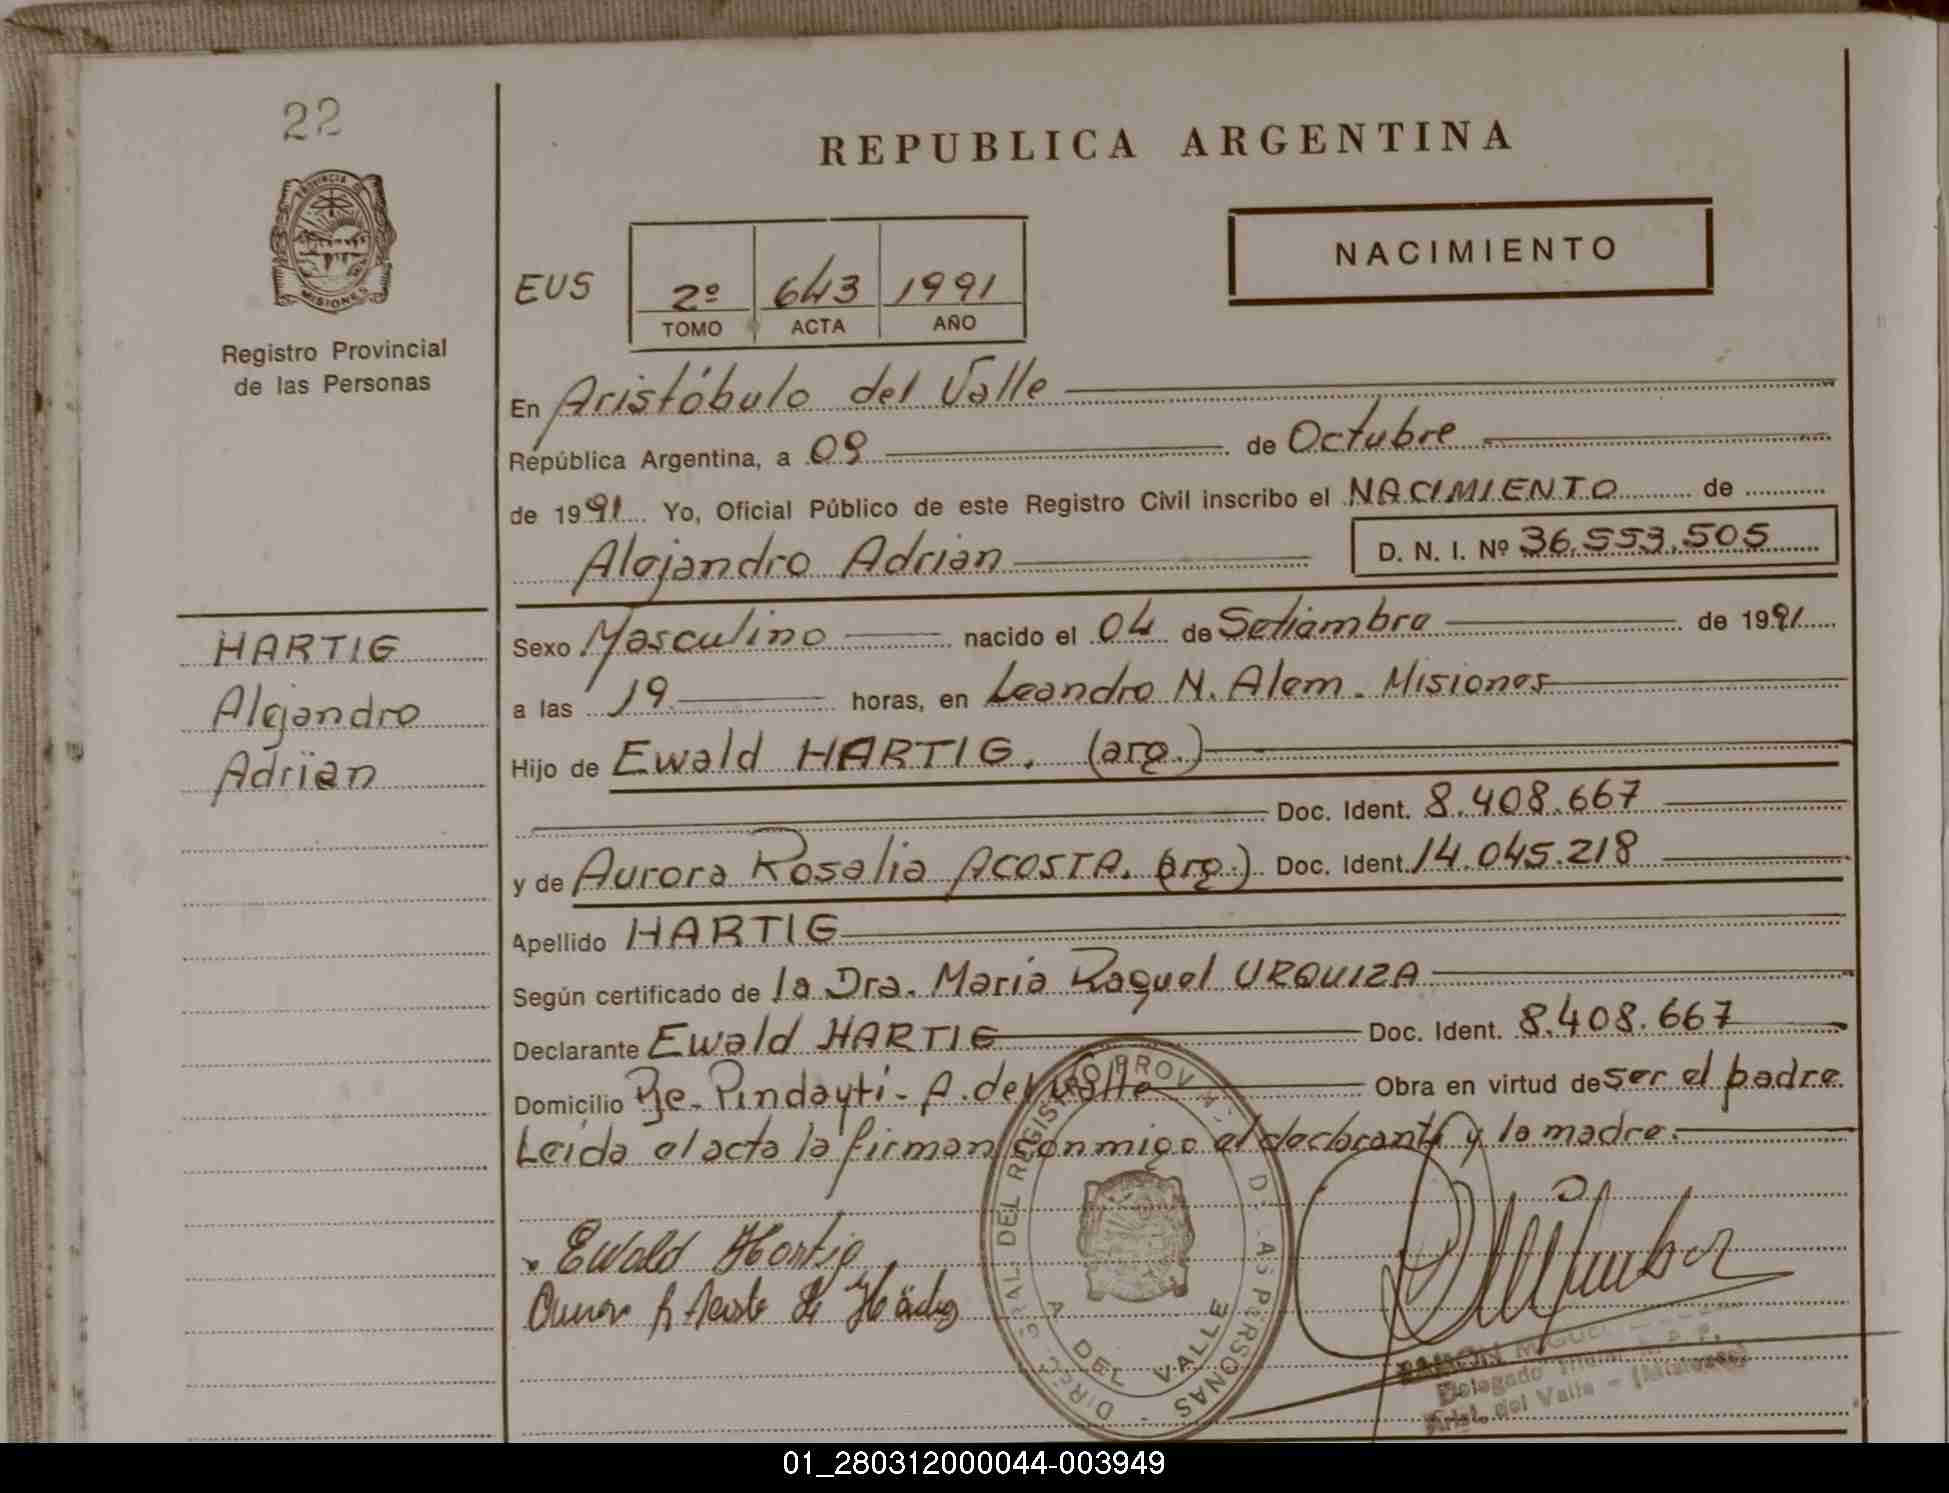 22
PROVINCIA DE
MISIONES
Registro Provincial
de las Personas
HARTIG
Alejandro
Adrián
REPUBLICA ARGENTINA
NACIMIENTO
EUS
2º 643 1991
TOMO ACTA AÑO
En Aristóbulo del Valle
República Argentina, a 09 de Octubre
de 1991 Yo, Oficial Público de este Registro Civil inscribo el NACIMIENTO de
Alejandro Adrian D. N. I. Nº 36.553.505
Sexo Masculino nacido el 04 de Setiembre de 1991
a las 19 horas, en Leandro N. Alem. Misiones
Hijo de Ewald HARTIG. (arg.)
Doc. Ident. 8.408.667
y de Aurora Rosalia ACOSTA. (arg.) Doc. Ident. 14.045.218
Apellido HARTIG
Según certificado de la Dra. Maria Raquel URQUIZA
Declarante Ewald HARTIG Doc. Ident. 8.408.667
Domicilio Pje. Pindayti - A. del Valle Obra en virtud de ser el padre.
Leída el acta la firman conmigo el declarante y la madre.
Ewald Hartig
R Acosta de Hartig
DIREC. GRAL. DEL REGISTRO PROV. D. LAS PERSONAS
A DEL VALLE
RAMON MIGUEL
Delegado Titular R. P. P.
Arist. del Valle - (Misiones)
01_280312000044-003949